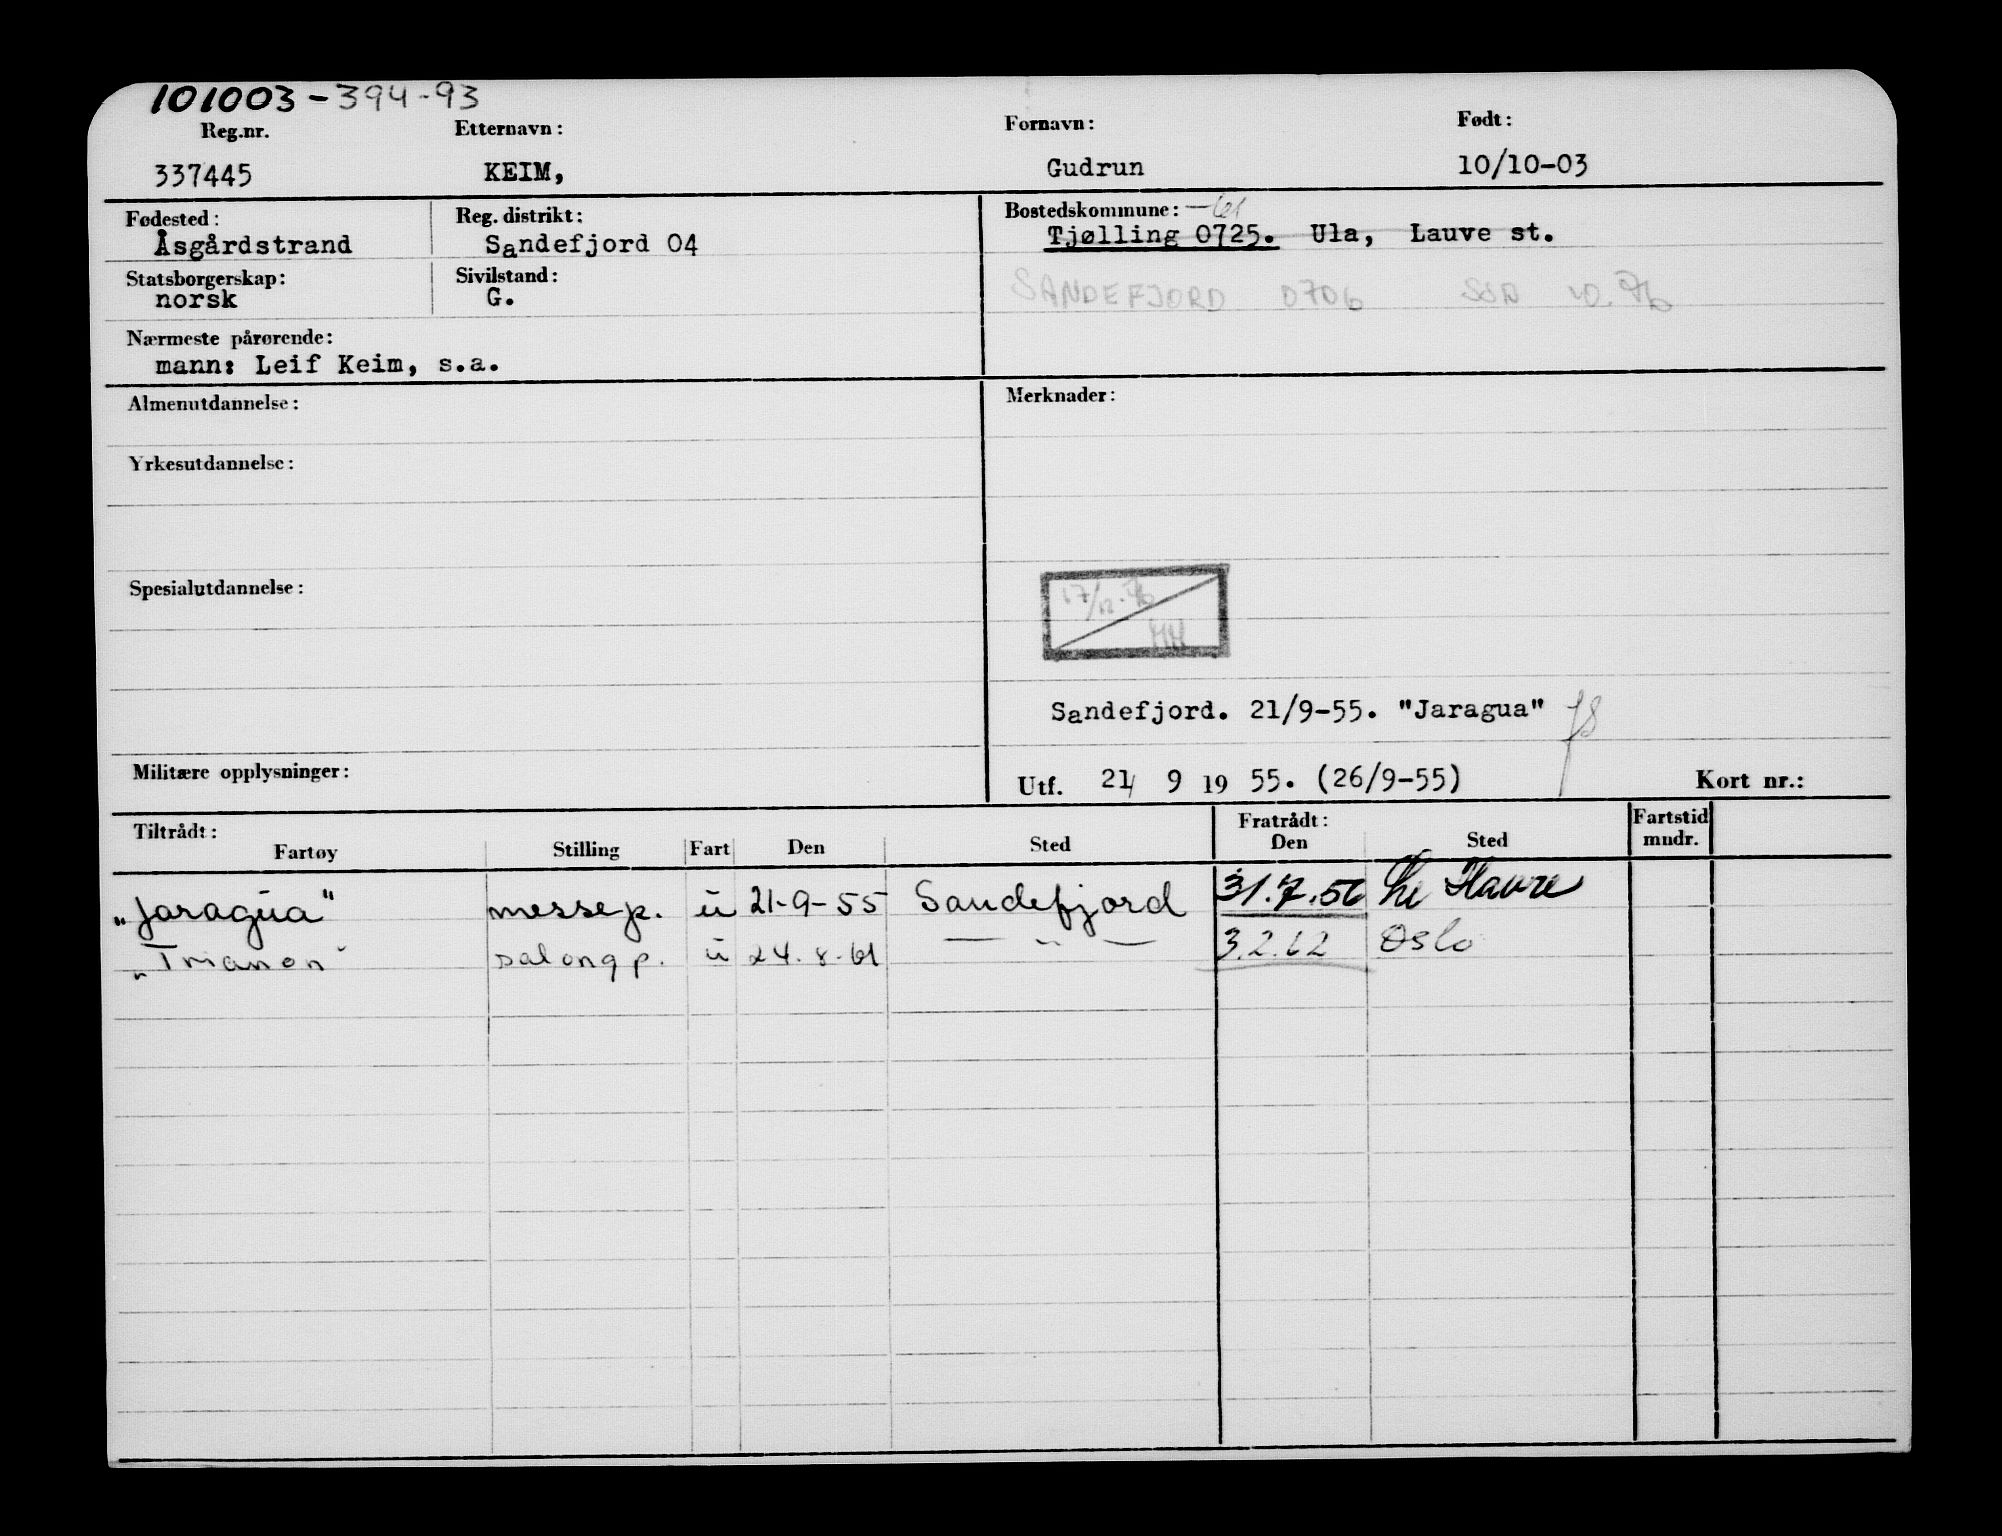 101003-394-93
Reg.nr. Etternavn: Fornavn: Født:
337445 KEIM, Gudrun 10/10-03
Fødested: Reg. distrikt: Bostedskommune:
Åsgårdstrand Sandefjord 04 Tjølling 0725. Ula, Lauve st.
Statsborgerskap: Sivilstand:
norsk G. SANDEFJORD 0706
Nærmeste pårørende:
mann: Leif Keim, s.a.
Almenutdannelse: Merknader:
Yrkesutdannelse:
Spesialutdannelse:
HH
Sandefjord. 21/9-55. "Jaragua"
Militære opplysninger: Utf. 21/ 9 19 55. (26/9-55) Kort nr.:
Tiltrådt: Fratrådt: Fartstid
Fartøy Stilling Fart Den Sted Den Sted mndr.
"Jaragua" messep. u 21-9-55 Sandefjord 31.7.56 Le Havre
"Trianon" salongp. u 24.8.61 — " — 3.2.62 Oslo